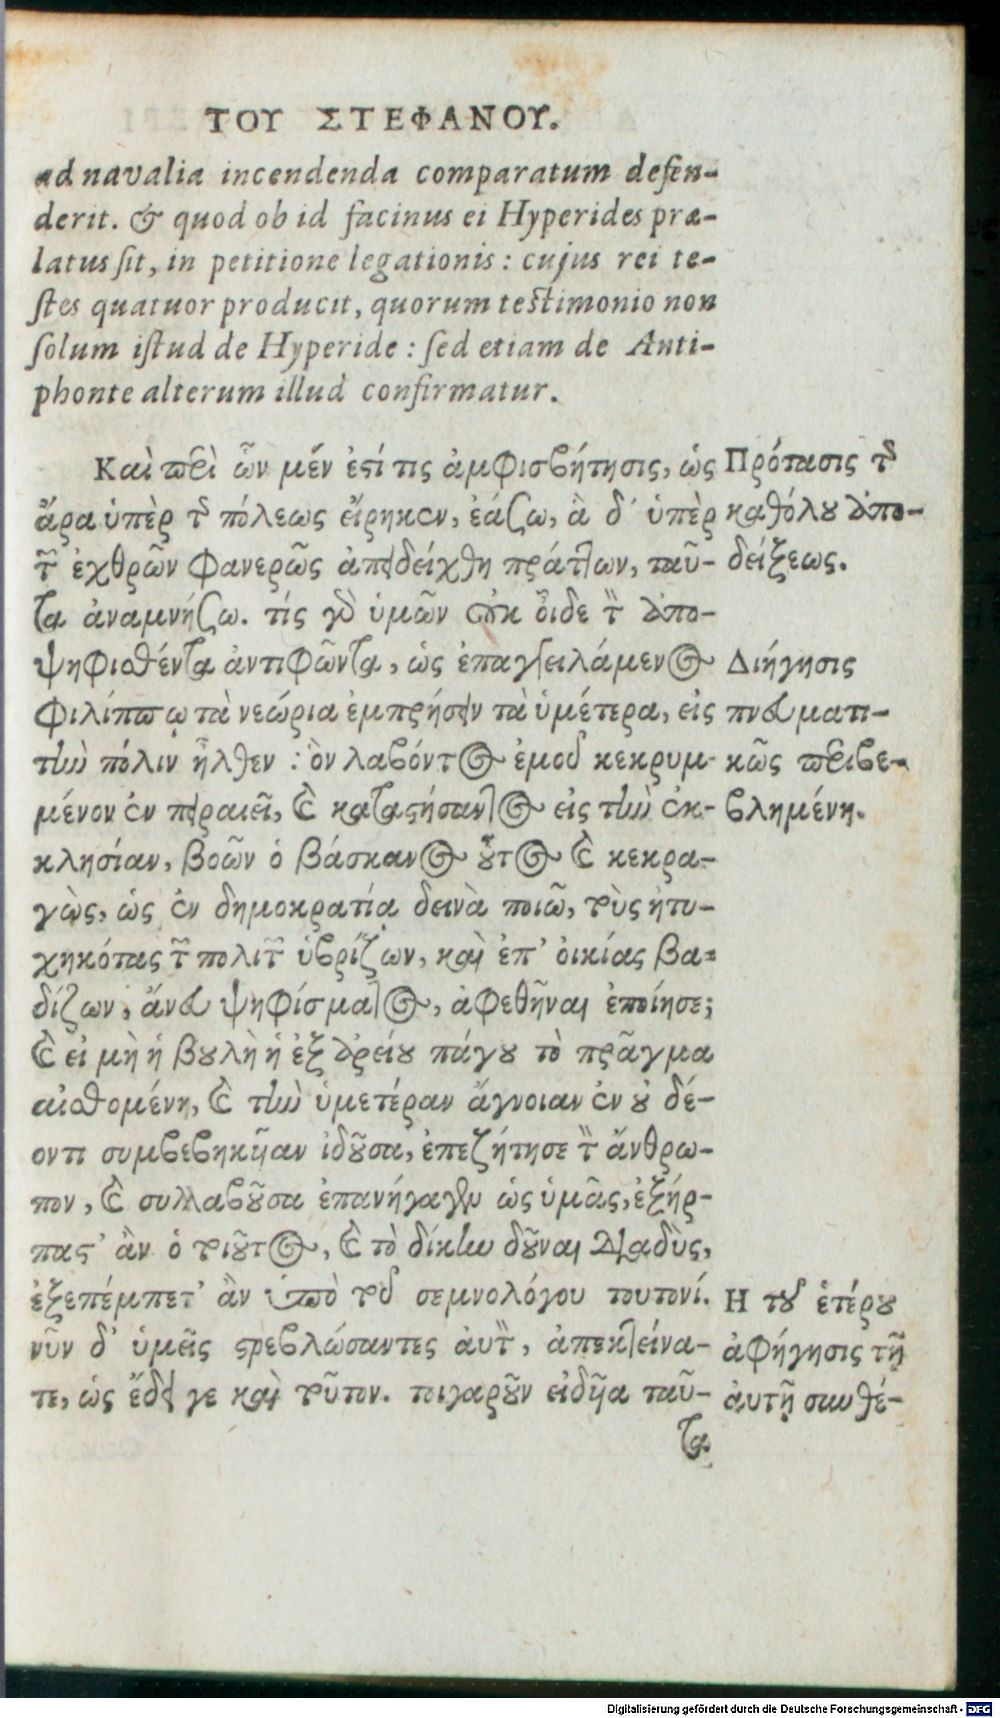 ΤΟΥ ΣΤΕΦΑΝΟΥ.
ad navalia incendenda comparatum defen-
derit. & quod ob id facinus ei Hyperides præ-
latus sit, in petitione legationis: cujus rei te-
stes quatuor producit, quorum testimonio non
solum istud de Hyperide: sed etiam de Anti-
phonte alterum illud confirmatur.
Καὶ περὶ ὧν μέν ἐστί τις ἀμφισβήτησις, ὡς
ἄρα ὑπὲρ τ͂ πόλεως εἴρηκεν, ἐάσω, ἃ δ' ὑπὲρ
τ͂ ἐχθρῶν φανερῶς ἀπεδείχθη πράττων, ταῦ-
τα ἀναμνήσω. τίς γὸ ὑμῶν οὐκ οἶδε τ̀ ἀπο-
ψηφισθέντα ἀντιφῶντα, ὡς ἐπαγγειλάμενος
φιλίππῳ τὰ νεώρια ἐμπρήσειν τὰ ὑμέτερα, εἰς
τὴν πόλιν ἦλθεν: ὃν λαβόντος ἐμοῦ κεκρυμ-
μένον ἐν πειραιεῖ, καὶ καταστήσαντος εἰς τὴν ἐκ-
κλησίαν, βοῶν ὁ βάσκανος οὗτος καὶ κεκρα-
γὼς, ὡς ἐν δημοκρατίᾳ δεινὰ ποιῶ, τοὺς ἠτυ-
χηκότας τ͂ πολιτ͂ ὑβρίζων, καὶ ἐπ' οἰκίας βα-
δίζων, ἄνευ ψηφίσματος, ἀφεθῆναι ἐποίησε;
καὶ εἰ μὴ ἡ βουλὴ ἡ ἐξ ἀρείου πάγου τὸ πρᾶγμα
αἰσθομένη, καὶ τὴν ὑμετέραν ἄγνοιαν ἐν οὐ δέ-
οντι συμβεβηκυῖαν ἰδοῦσα, ἐπεζήτησε τ̀ ἄνθρω-
πον, καὶ συλλαβοῦσα ἐπανήγαγεν ὡς ὑμᾶς, ἐξήρ-
παστ' ἂν ὁ τοιοῦτος, καὶ τὸ δίκην δοῦναι διαδὺς,
ἐξεπέμπετ' ἂν ὑπὸ τοῦ σεμνολόγου τουτονί.
νῦν δ' ὑμεῖς στρεβλώσαντες αὐτ̀, ἀπεκτείνα-
τε, ὡς ἔδει γε καὶ τοῦτον. τοιγαροῦν εἰδυῖα ταῦ-
τα
Πρότασις τοῦ
καθόλου ἀπο-
δείξεως.
Διήγησις
πνευματι-
κῶς περιβε-
βλημένη.
Η τοῦ ἑτέρου
ἀφήγησις τῇ
αὐτῇ συνθέ-
Digitalisierung gefördert durch die Deutsche Forschungsgemeinschaft - DFG